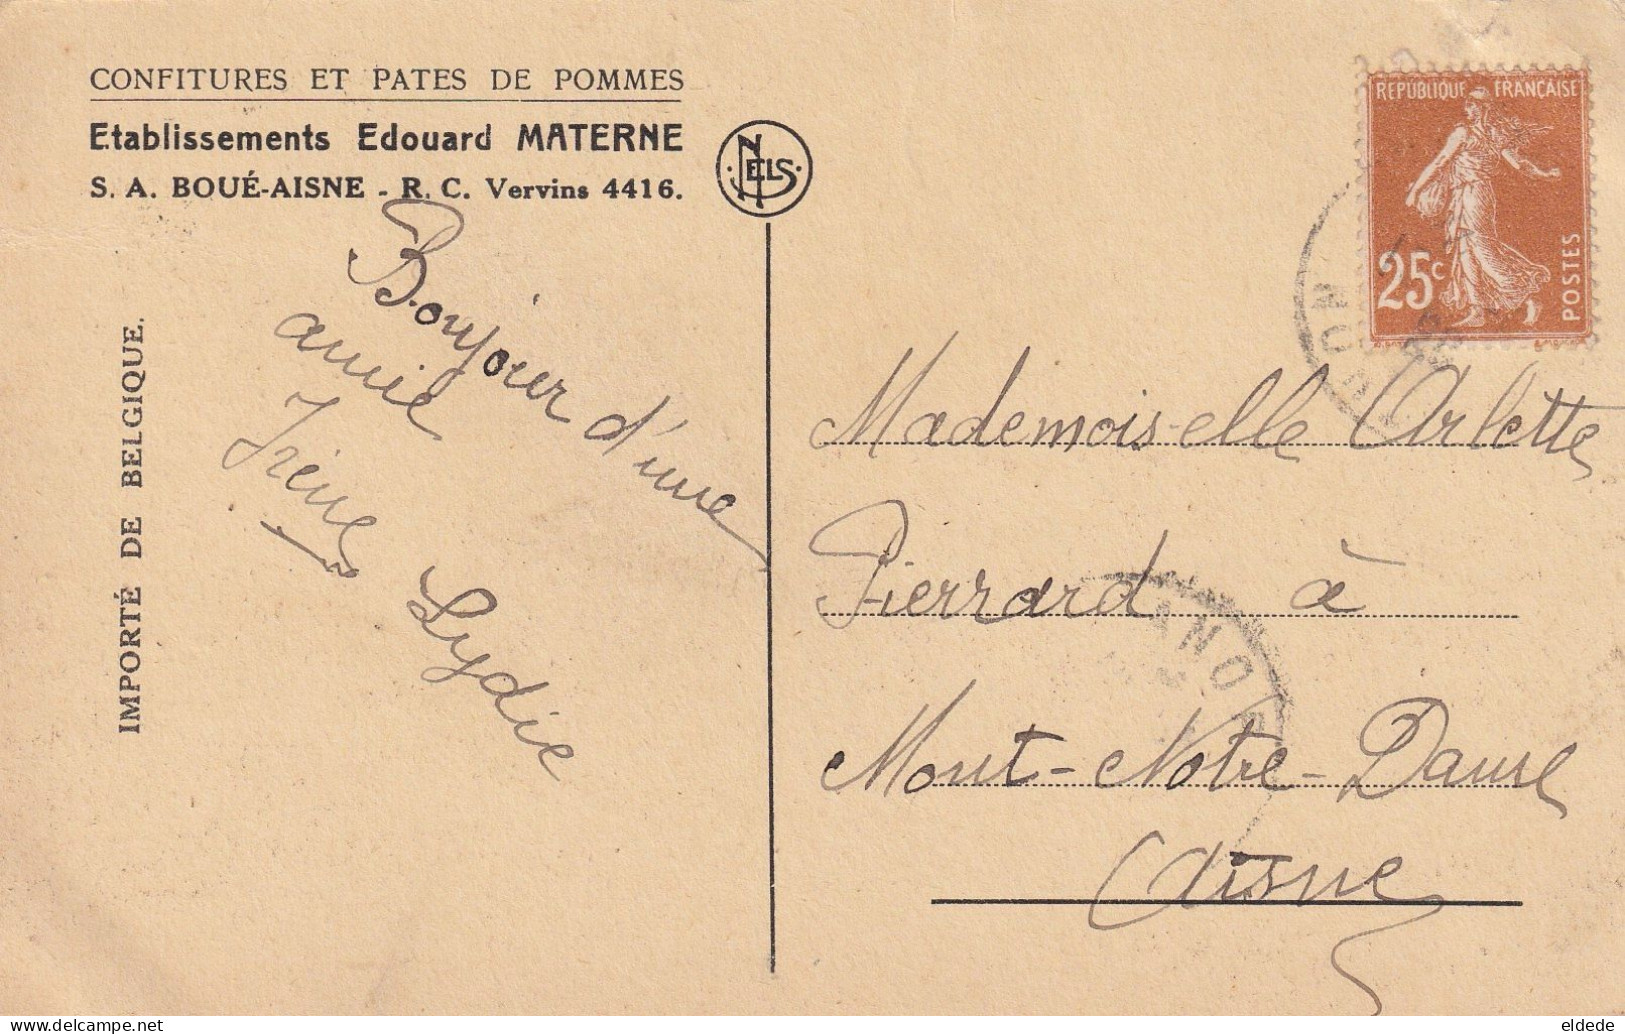 CONFITURES ET PATES DE POMMES
Etablissements Edouard MATERNE
S. A. BOUÉ-AISNE - R. C. Vervins 4416.
NELS
IMPORTÉ DE BELGIQUE.
Bonjour d'une
amie
Irène
Lydie
REPUBLIQUE FRANÇAISE
25c
POSTES
Mademoiselle Arlette
Pierrard à
Mont-Notre-Dame
Aisne
ANOR
eldede